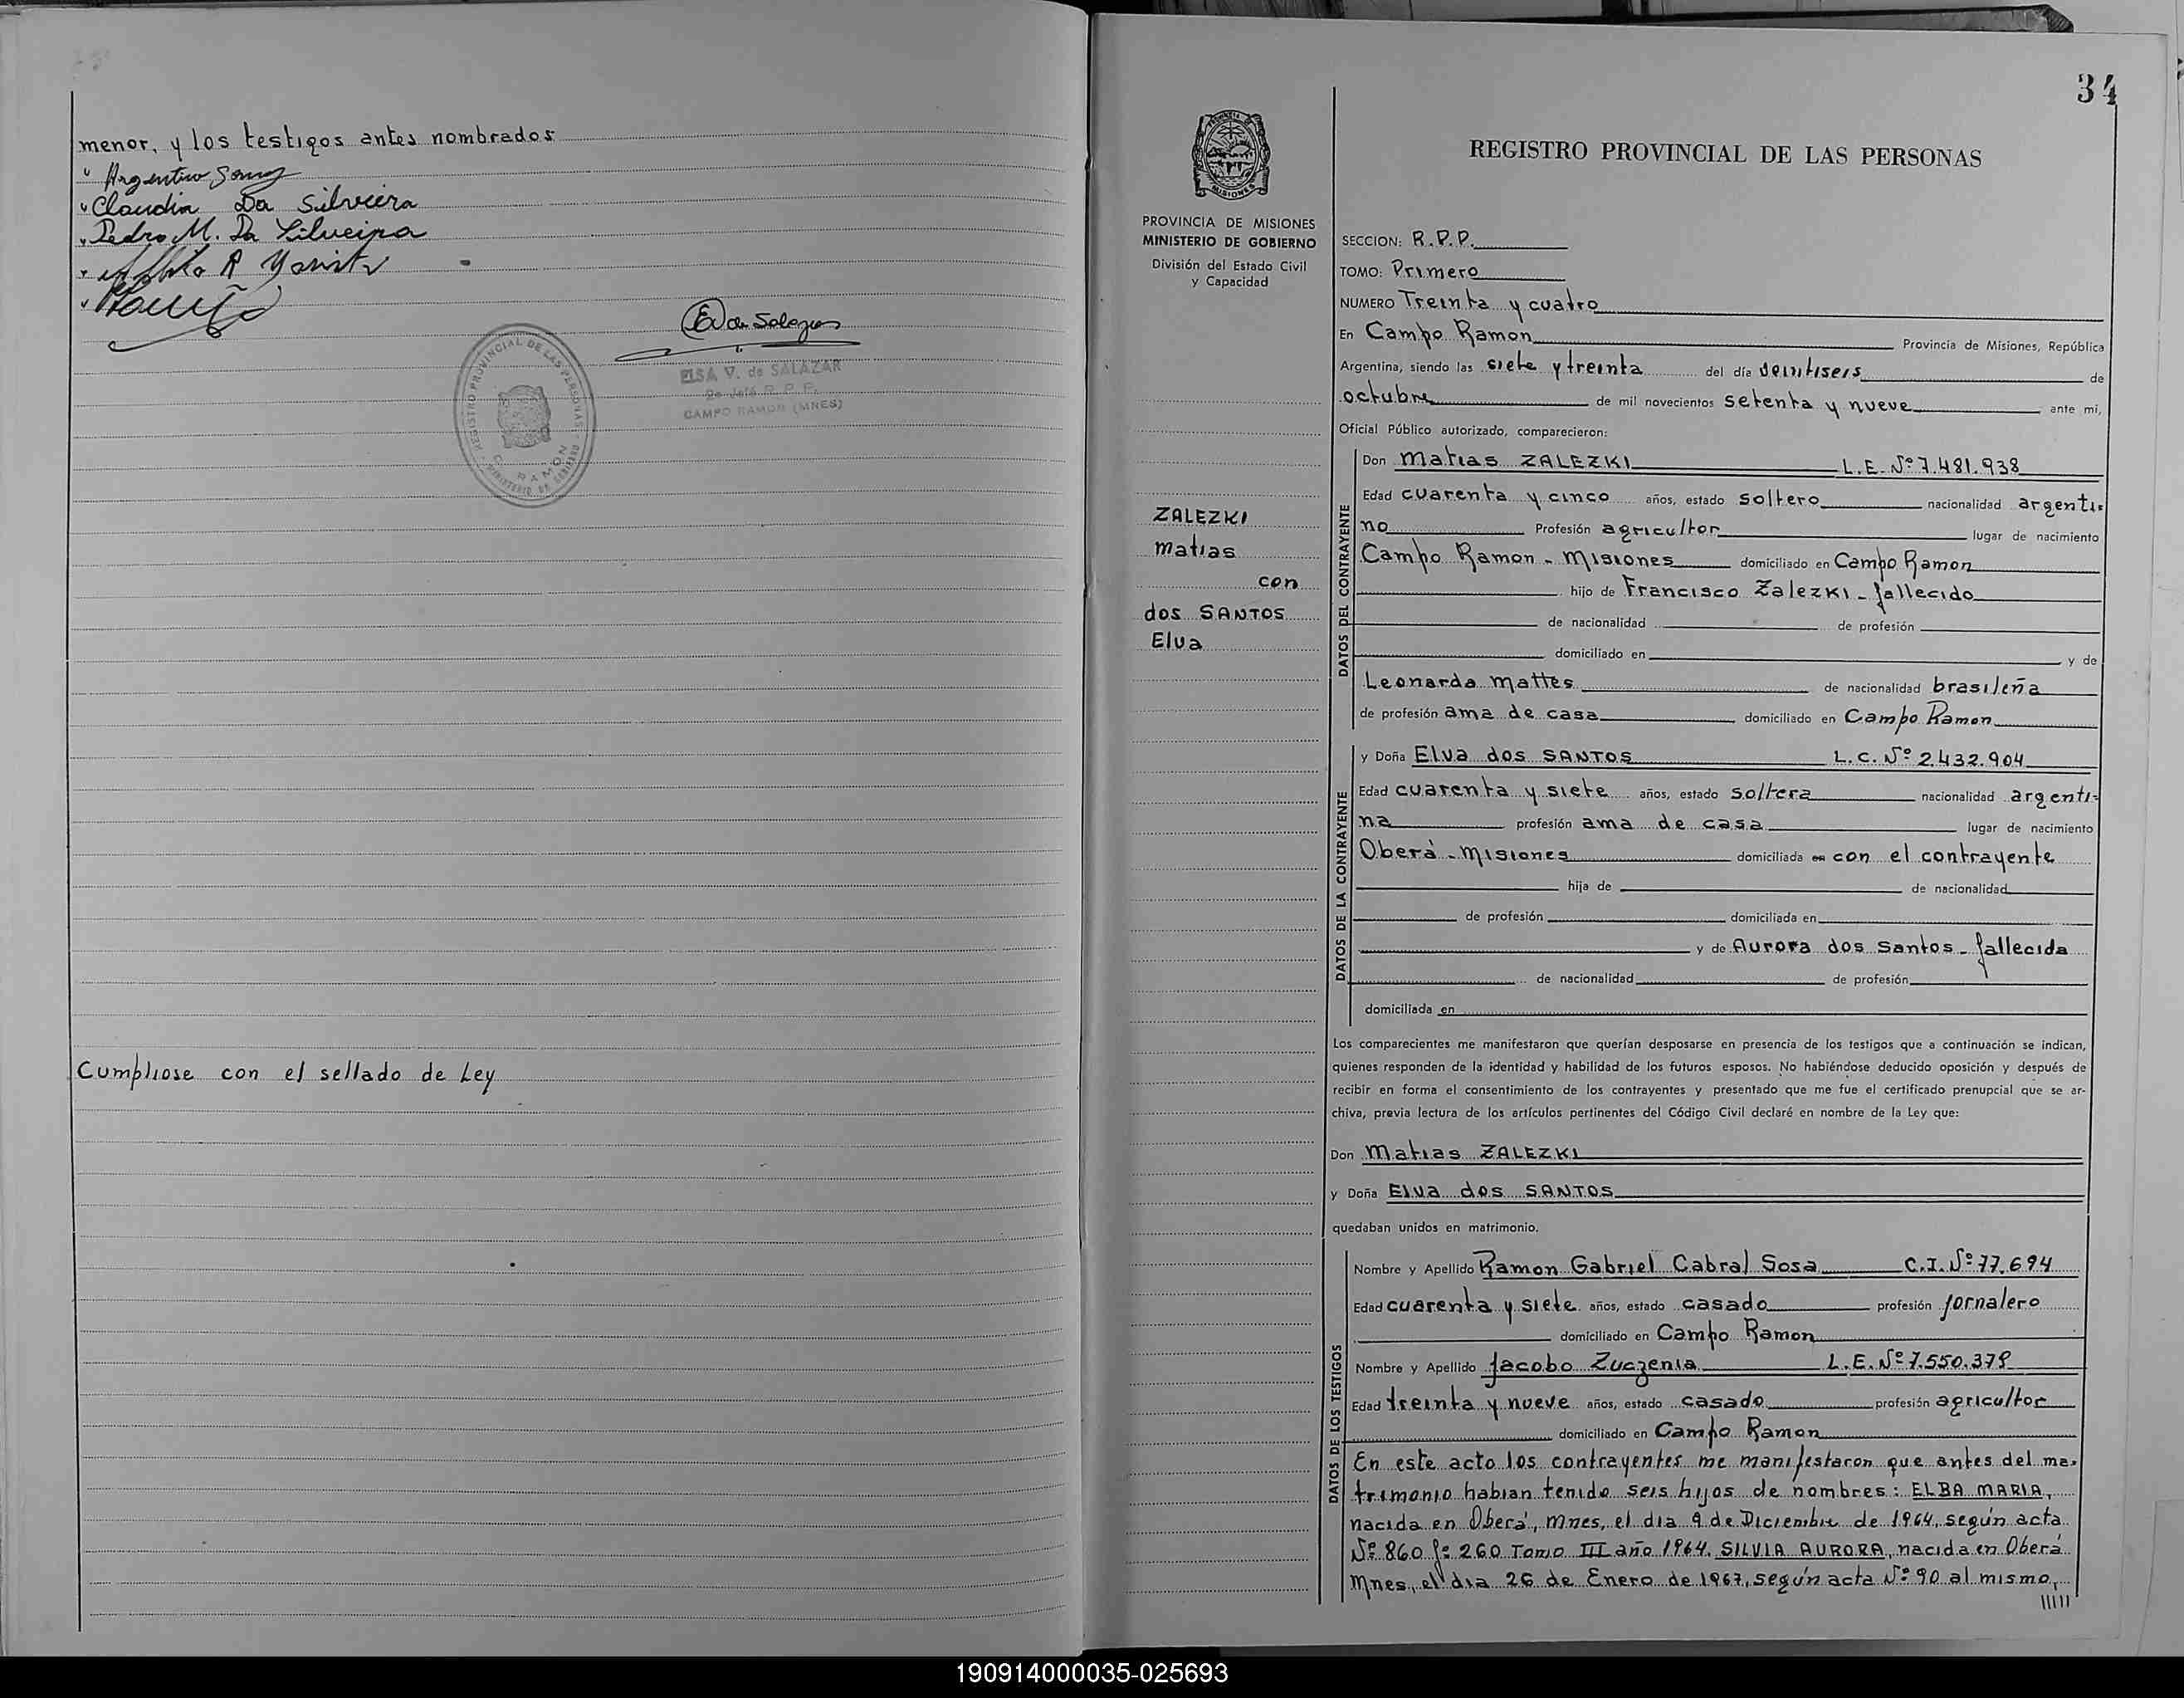 menor, y los testigos antes nombrados
Claudia Da Silveira
Pedro M. Da Silveira
REGISTRO PROVINCIAL DE LAS PERSONAS
RAMON
ELSA V. de SALAZAR
R. P. P.
CAMPO RAMON (MNES)
Cumpliose con el sellado de Ley
34
PROVINCIA DE MISIONES
MINISTERIO DE GOBIERNO
División del Estado Civil
y Capacidad
ZALEZKI
Matias
con
dos SANTOS
Elva
REGISTRO PROVINCIAL DE LAS PERSONAS
SECCION: R.P.P.
TOMO: Primero
NUMERO Treinta y cuatro
En Campo Ramon Provincia de Misiones, República
Argentina, siendo las siete y treinta del día veintiseis de
octubre de mil novecientos setenta y nueve ante mi,
Oficial Público autorizado, comparecieron:
DATOS DEL CONTRAYENTE
Don Matias ZALEZKI L.E. Nº 7.481.938
Edad cuarenta y cinco años, estado soltero nacionalidad argenti=
no Profesión agricultor lugar de nacimiento
Campo Ramon - Misiones domiciliado en Campo Ramon
hijo de Francisco Zalezki - fallecido
de nacionalidad de profesión
domiciliado en y de
Leonarda Mattes de nacionalidad brasileña
de profesión ama de casa domiciliado en Campo Ramon
DATOS DE LA CONTRAYENTE
y Doña Elva dos SANTOS L.C. Nº 2.432.904
Edad cuarenta y siete años, estado soltera nacionalidad argenti=
na profesión ama de casa lugar de nacimiento
Oberá - Misiones domiciliada en con el contrayente
hija de de nacionalidad
de profesión domiciliada en
y de Aurora dos Santos - fallecida
de nacionalidad de profesión
domiciliada en
Los comparecientes me manifestaron que querían desposarse en presencia de los testigos que a continuación se indican,
quienes responden de la identidad y habilidad de los futuros esposos. No habiéndose deducido oposición y después de
recibir en forma el consentimiento de los contrayentes y presentado que me fue el certificado prenupcial que se ar-
chiva, previa lectura de los artículos pertinentes del Código Civil declaré en nombre de la Ley que:
Don Matias ZALEZKI
y Doña Elva dos SANTOS
quedaban unidos en matrimonio.
DATOS DE LOS TESTIGOS
Nombre y Apellido Ramon Gabriel Cabral Sosa C.I. Nº 77.694
Edad cuarenta y siete años, estado casado profesión jornalero
domiciliado en Campo Ramon
Nombre y Apellido Jacobo Zuczenia L.E. Nº 7.550.378
Edad treinta y nueve años, estado casado profesión agricultor
domiciliado en Campo Ramon
En este acto los contrayentes me manifestaron que antes del ma=
trimonio habian tenido seis hijos de nombres: ELBA MARIA,
nacida en Oberá, Mnes, el dia 9 de Diciembre de 1964, según acta
Nº 860 fº 260 Tomo III año 1964. SILVIA AURORA, nacida en Oberá
Mnes, el dia 26 de Enero de 1967, según acta Nº 90 al mismo,
//////
190914000035-025693